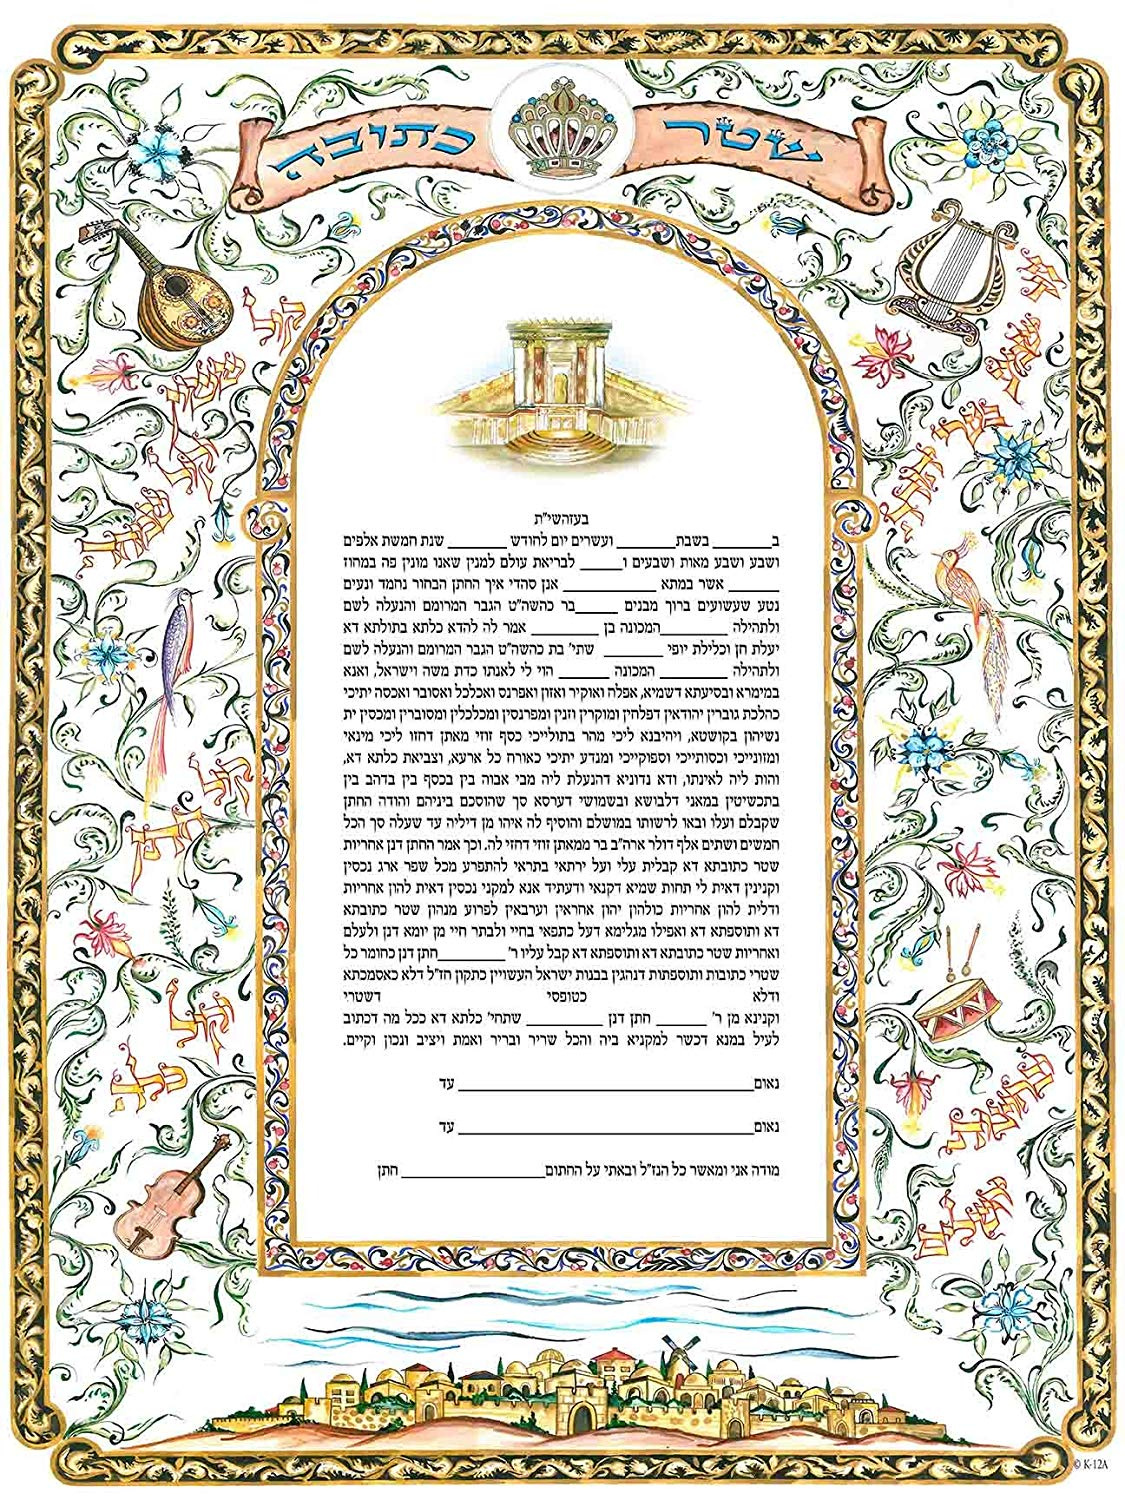 שטר כתובה
עוד
ישמע
בערי
יהודה
ובחוצות
ירושלים
קול
ששון
וקול
שמחה
קול
חתן
וקול
כלה
בעזהשי"ת
ב________ בשבת________ ועשרים יום לחודש ________ שנת חמשת אלפים
ושבע ושבע מאות ושבעים ו______ לבריאת עולם למנין שאנו מונין פה במחוז
______ אשר במתא ____________ אנן סהדי איך החתן הבחור נחמד ונעים
נטע שעשועים ברוך מבנים ______בר כהשה"ט הגבר המרומם והנעלה לשם
ולתהילה _________המכונה בן _________ אמר לה להדא כלתא בתולתא דא
יעלת חן וכלילת יופי ________ שתי' בת כהשה"ט הגבר המרומם והנעלה לשם
ולתהילה _________ המכונה _______ הוי לי לאנתו כדת משה וישראל, ואנא
במימרא ובסיעתא דשמיא, אפלח ואוקיר ואזון ואפרנס ואכלכל ואסובר ואכסה יתיכי
כהלכת גוברין יהודאין דפלחין ומוקרין וזנין ומפרנסין ומכלכלין ומסוברין ומכסין ית
נשיהון בקושטא, ויהיבנא ליכי מהר בתולייכי כסף זוזי מאתן דחזו ליכי מינאי
ומזונייכי וכסותייכי וספוקייכי ומנדע יתיכי כאורח כל ארעא, וצביאת כלתא דא,
והות ליה לאינתו, ודא נדוניא דהנעלת ליה מבי אבוה בין בכסף בין בדהב בין
בתכשיטין במאני דלבושא ובשמושי דערסא סך שהוסכם ביניהם והודה החתן
שקבלם ועלו ובאו לרשותו במושלם והוסיף לה איהו מן דיליה עד שעלה סך הכל
חמשים ושתים אלף דולר ארה"ב בר ממאתן זוזי דחזי לה. וכך אמר החתן דנן אחריות
שטר כתובתא דא קבלית עלי ועל ירתאי בתראי להתפרע מכל שפר ארג נכסין
וקנינין דאית לי תחות שמיא דקנאי ודעתיד אנא למקני נכסין דאית להון אחריות
ודלית להון אחריות כולהון יהון אחראין וערבאין לפרוע מנהון שטר כתובתא
דא ותוספתא דא ואפילו מגלימא דעל כתפאי בחיי ולבתר חיי מן יומא דנן ולעלם
ואחריות שטר כתובתא דא ותוספתא דא קבל עליו ר' _________חתן דנן כחומר כל
שטרי כתובות ותוספתות דנהגין בבנות ישראל העשויין כתקון חז"ל דלא כאסמכתא
ודלא כטופסי דשטרי
וקנינא מן ר' _______ חתן דנן __________ שתחי' כלתא דא ככל מה דכתוב
לעיל במנא דכשר למקניא ביה והכל שריר ובריר ואמת ויציב ונכון וקיים.
נאום______________________________________ עד
נאום______________________________________ עד
מודה אני ומאשר כל הנז"ל ובאתי על החתום___________________ חתן
© K-12A